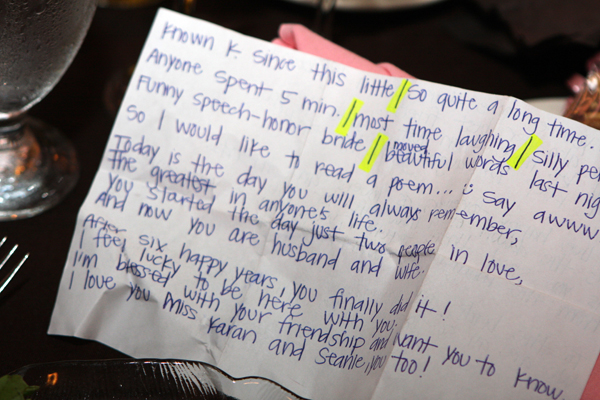 Known K. since this little / so quite a long time.
Anyone spent 5 min. / most time laughing / silly per
Funny speech-honor bride / moved beautiful words last nig
So I would like to read a poem... : say awww
Today is the day you will always remember,
the greatest in anyone's life.
You started the day just two people in love,
And now you are husband and wife.
After six happy years, you finally did it!
I feel lucky to be here with you.
I'm blessed with your friendship and want you to know.
I love you Miss Karan and Seanie, you too!